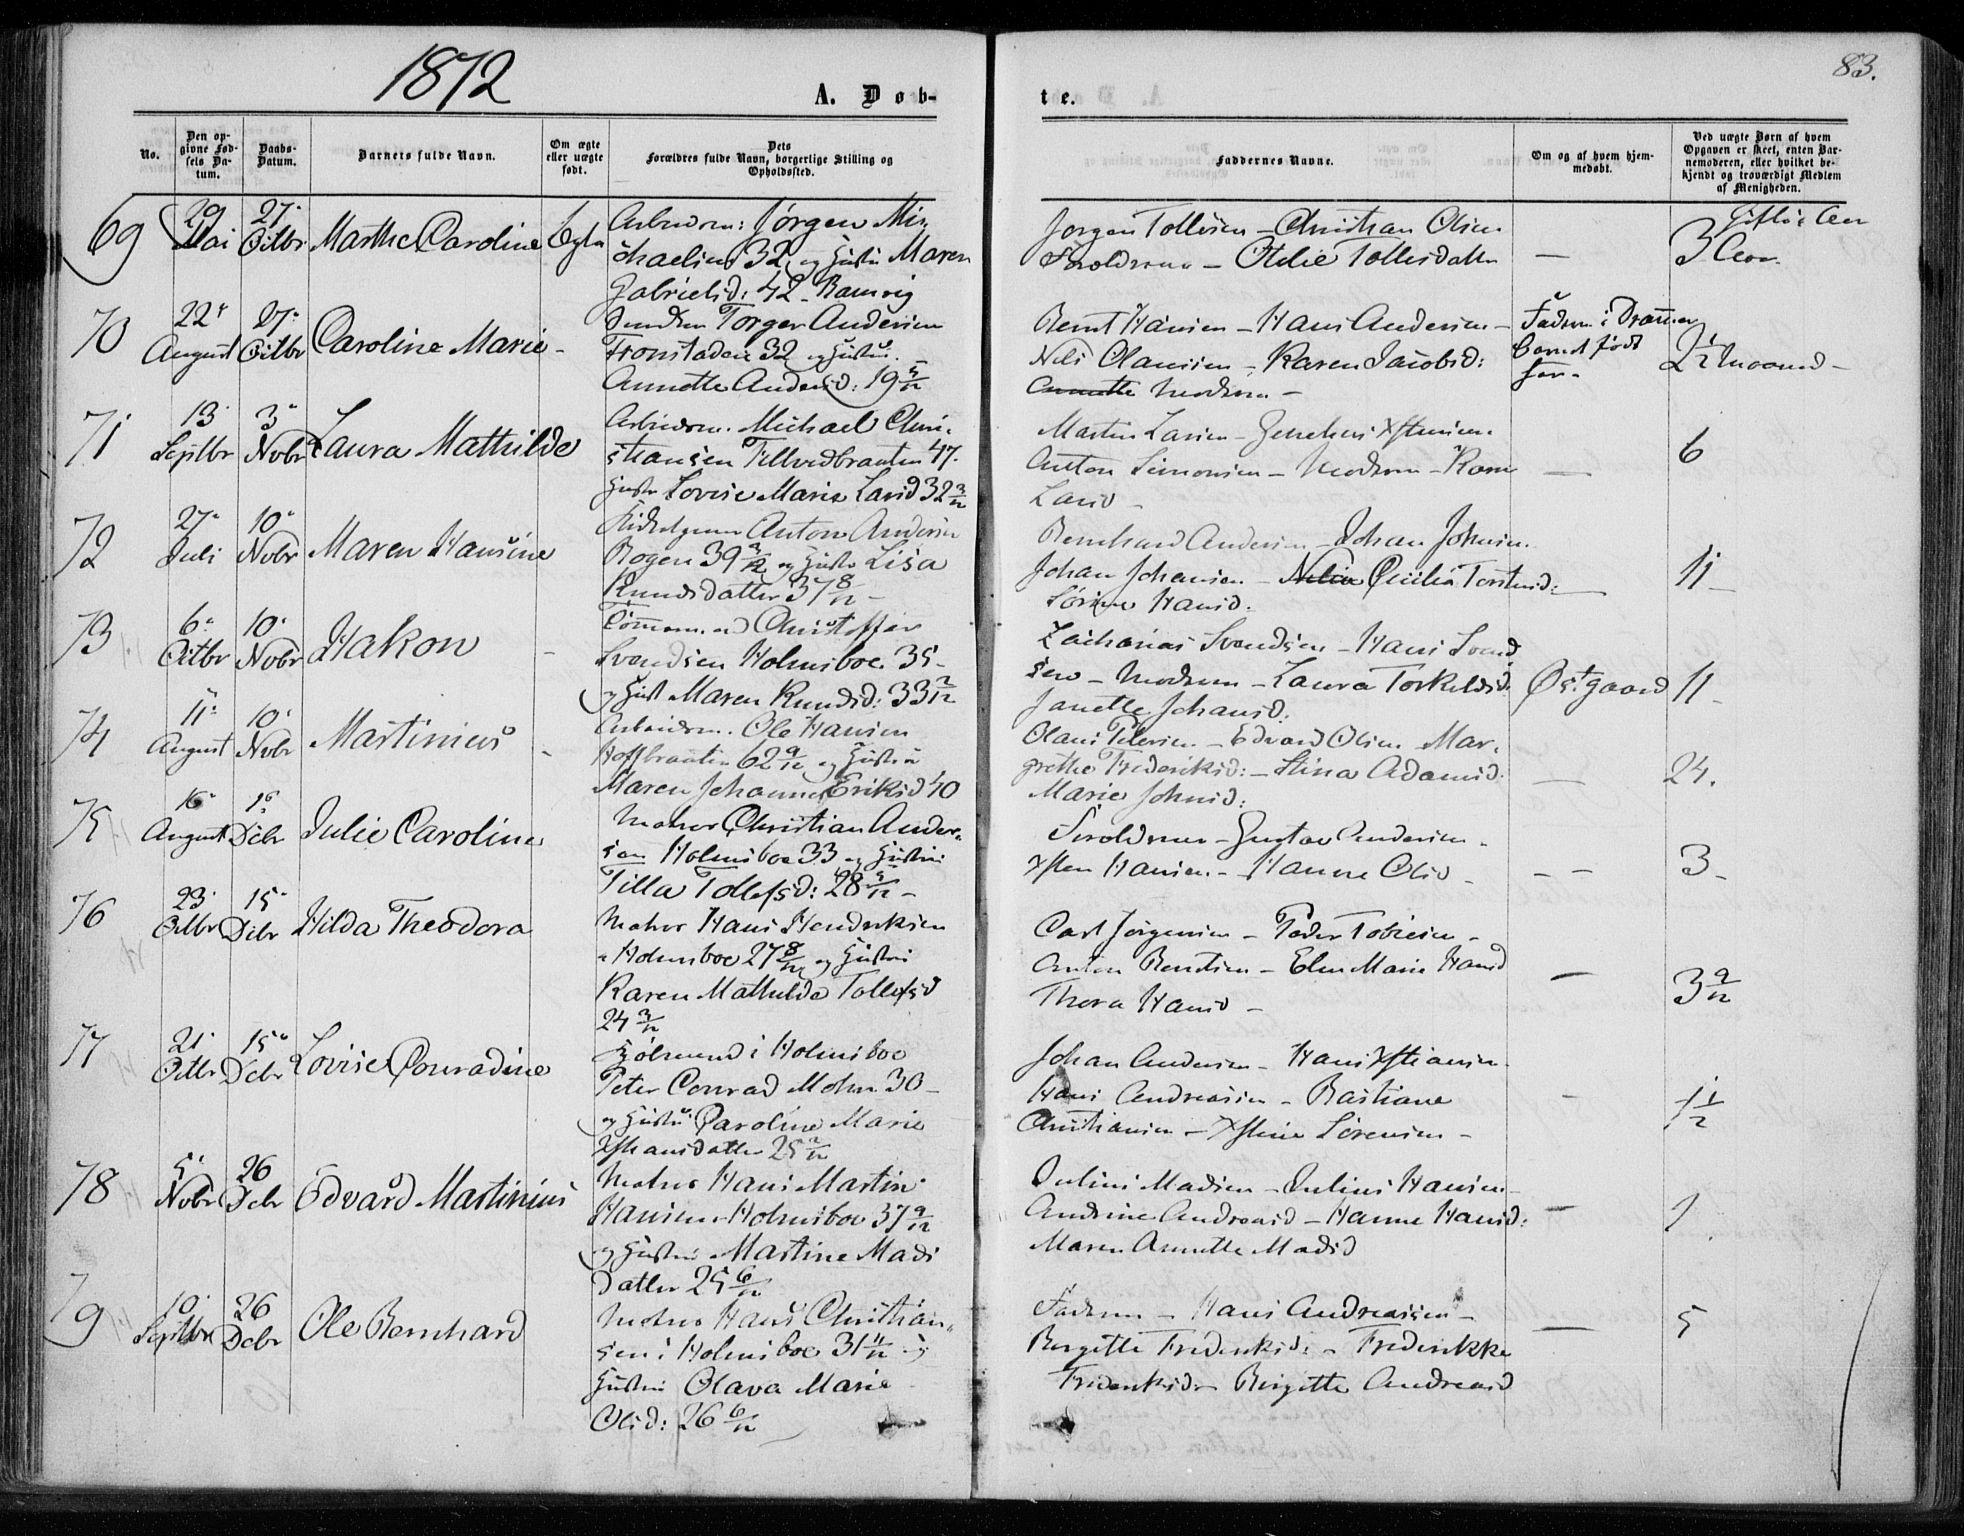 1872
83.
A. Døb-
te.
No.
Den op-
givne Fød-
sels Da-
tum.
Daabs-
Datum.
Barnets fulde Navn.
Om ægte
eller uægte
født.
Dets
Forældres fulde Navn, borgerlige Stilling og
Opholdssted.
Faddernes Navne.
Om og af hvem hjem-
medøbt.
Ved uægte Børn af hvem
Opgaven er skeet, enten Bar-
nemoderen, eller hvilket be-
kjendt og troværdigt Medlem
af Menigheden.
69
29
Mai
27
Octbr
Marthe Caroline
Ægte
Arbeidsm: Jørgen Mi-
chaelsen 32 og Hustru Maren
Gabrielsd: 42
Jørgen Tollefsen - Christian Olsen
Forældrene - Otelie Tollefsdatter
—
3
70
22
August
27
Octbr
Caroline Marie
-
Torger Andersen
Tronstaden 32 og Hustru
Annette Andersd: 19 5/12
Bernt Hansen - Hans Andersen -
Nils Olaussen - Karen Jacobsd:
Annette Moderen -
Faderen i Drammen
Barnet født
før
2 1/2 Maaned -
71
13
Septbr
3
Novbr
Laura Mathilde
Arbeidsm. Michael Chri-
stiansen Tillvedbraaten 47
Hustr Lovise Marie Larsd 32 3/12
Martin Larsen -
Anton Simonsen - Moderen - Karen
Larsd -
6
72
27
Juli
10
Novbr
Maren Hansine
Anton Andersen
Bogen 39 3/12 og Hustr Lisa
Knudsdatter 37 8/12 -
Bernhard Andersen - Johan Johnsen
Johan Johansen - Cecilie Torstensd:
Sørine Hansd.
11
73
6
Octbr
10
Novbr
Hakon
-
Tømmermand Christoffer
Svendsen Holmsboe 35 -
og Hust Maren Knudsd: 33 2/12
Zacharias Svendsen - Hans Svend
sen - Moderen - Laura Torkildsd.
Janette Johansd:
Østgaard
11
74
11
August
10
Novbr
Martinius
-
Arbeidsm. Ole Hansen
Hoffbraaten 62 9/12 og Hustru
Maren Johanne Eriksd 40
Olaus Petersen - Edvard Olsen Mar-
grethe Frederiksd: - Stina Adamsd:
Marie Johnsd:
—
24.
75
16
August
1
Decbr
Julie Caroline
Matros Christian Ander-
sen Holmsboe 33 og Hustru
Tilla Tollefsd: 28 5/12 -
Forældrene - Gustav Andersen -
Xsten Hansen - Hanne Olsd -
— —
3
76
23
Octbr
15
Decbr
Hilda Theodora
Matros Hans Hendriksen
Holmsboe 27 8/12 og Hustru
Karen Mathilde Tollefsd
24 3/12
Carl Jørgensen - Peder Tobiesen -
Anton Bentsen - Elen Marie Hansd
Thora Hansd -
—
3 9/12
77
21
Octbr
15
Decbr
Lovise Conradine
Sømand i Holmsboe
Peter Conrad Mohn 30 -
og Hustru Caroline Marie
Xstiansdatter 25 2/12
Johan Andersen - Hans Xstiansen
Hans Andreasen - Bastiane
Christiansen - Xstine Sørensen -
-
1 1/2
78
5
Novbr
26
Decbr
Edvard Martinius
Matros Hans Martin
Hansen - Holmsboe 37 9/12
og Hustru Martine Mads
datter 25 6/12
Julius Madsen - Julius Hansen
Andrine Andreasd - Hanne Hansd:
Maren Annette Madsd
—
1
79
10
Septbr
26
Decbr
Ole Bernhard
Matros Hans Christian-
sen i Holmsboe 31 11/12 og
Hustru Olava Marie
Olsd: 26 6/12
Faderen - Hans Andreassen -
Birgitte Frederiksd: - Frederikke
Frederiksd - Birgitte Andreasd
—
5